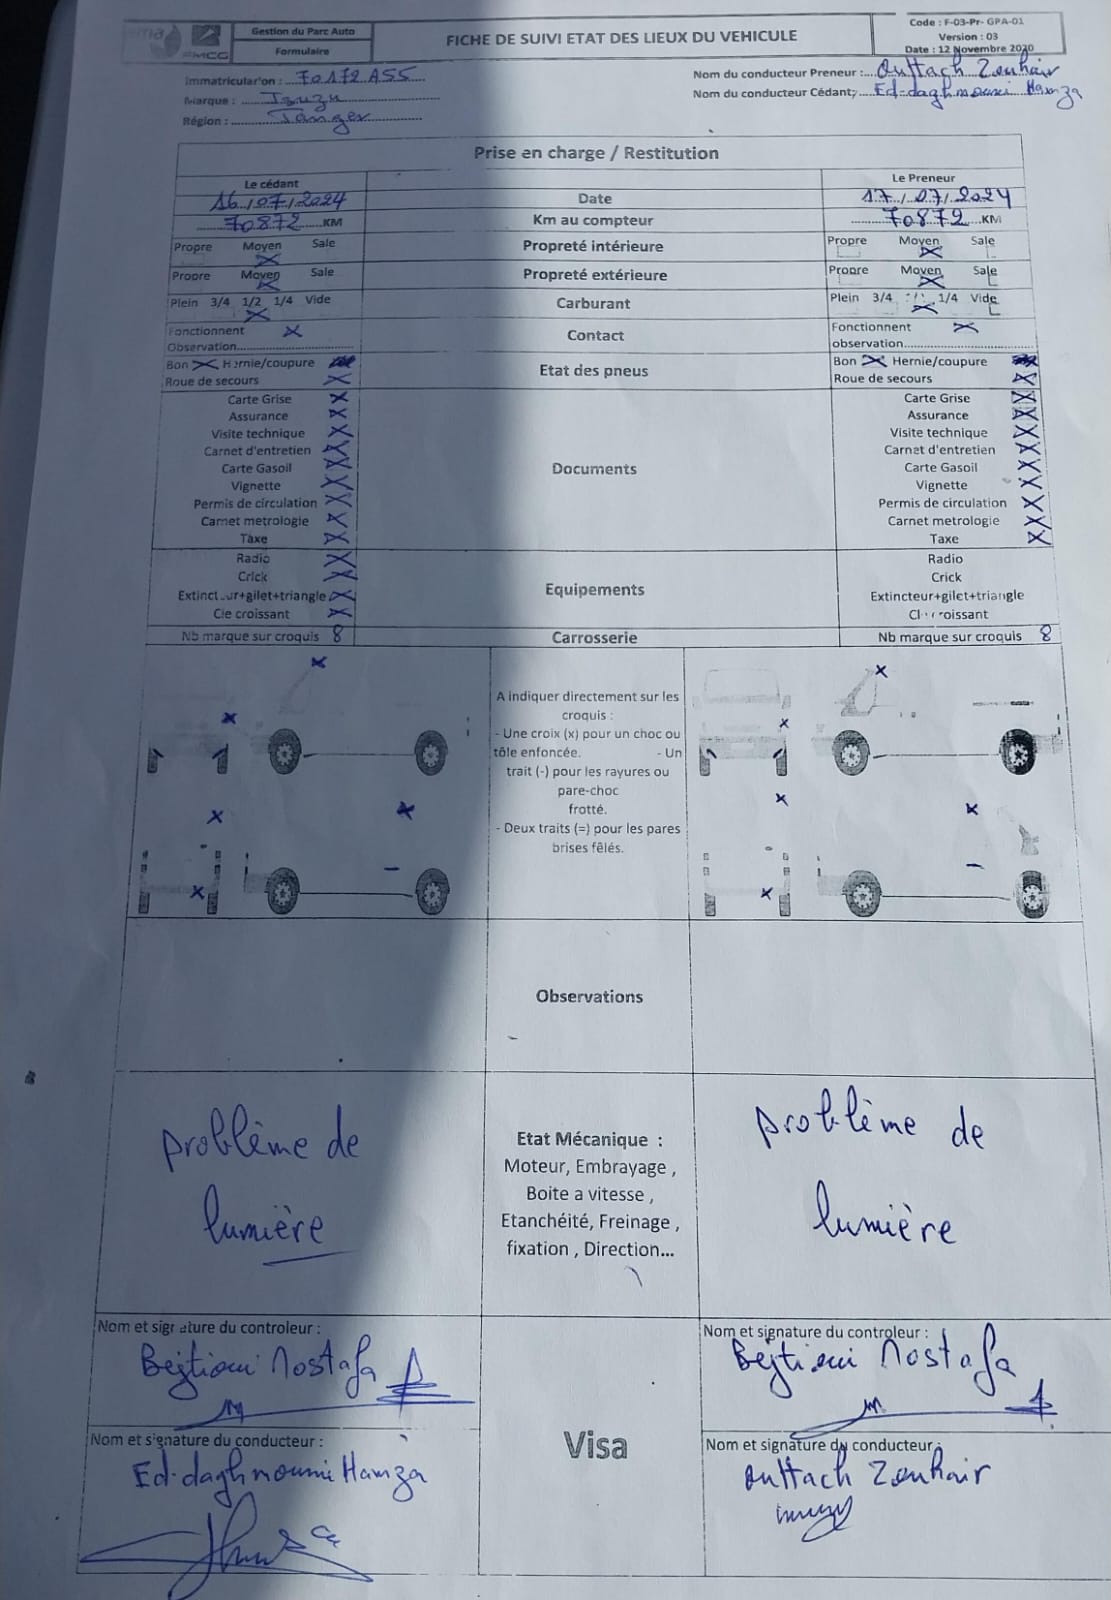 Gestion du Parc Auto
Formulaire
FMCG
FICHE DE SUIVI ETAT DES LIEUX DU VEHICULE
Code : F-03-Pr- GPA-01
Version : 03
Date : 12 Novembre 2020
Immatricular'on : 70172 A55
Marque : Isuzu
Région : Tanger
Nom du conducteur Preneur : Outtach Zouhair
Nom du conducteur Cédant; Ed-daghmouni Hamza
Prise en charge / Restitution
Le cédant Le Preneur
16/07/2024 Date 17/07/2024
70872 KM Km au compteur 70872 KM
Propre Moyen Sale Propreté intérieure Propre Moyen Sale
Propre Moyen Sale Propreté extérieure Propre Moyen Sale
Plein 3/4 1/2 1/4 Vide Carburant Plein 3/4 1/4 Vide
Fonctionnent x Contact Fonctionnent x
Observation observation
Bon x Hernie/coupure Etat des pneus Bon x Hernie/coupure
Roue de secours x Roue de secours x
Carte Grise x Carte Grise x
Assurance x Assurance x
Visite technique x Visite technique x
Carnet d'entretien x Carnet d'entretien x
Carte Gasoil x Documents Carte Gasoil x
Vignette x Vignette x
Permis de circulation x Permis de circulation x
Carnet metrologie x Carnet metrologie x
Taxe x Taxe x
Radio x Radio
Crick x Crick
Extincteur+gilet+triangle x Equipements Extincteur+gilet+triangle
Cle croissant x Cle croissant
Nb marque sur croquis 8 Carrosserie Nb marque sur croquis 8
A indiquer directement sur les
croquis :
- Une croix (x) pour un choc ou
tôle enfoncée. - Un
trait (-) pour les rayures ou
pare-choc
frotté.
- Deux traits (=) pour les pares
brises fêlés.
Observations
problème de
lumière
Etat Mécanique :
Moteur, Embrayage ,
Boite a vitesse ,
Etanchéité, Freinage ,
fixation , Direction...
problème de
lumière
Nom et signature du controleur :
Bejtioui Mostafa
Nom et signature du conducteur :
Ed-daghmouni Hamza
Visa
Nom et signature du controleur :
Bejtioui Mostafa
Nom et signature du conducteur :
Outtach Zouhair